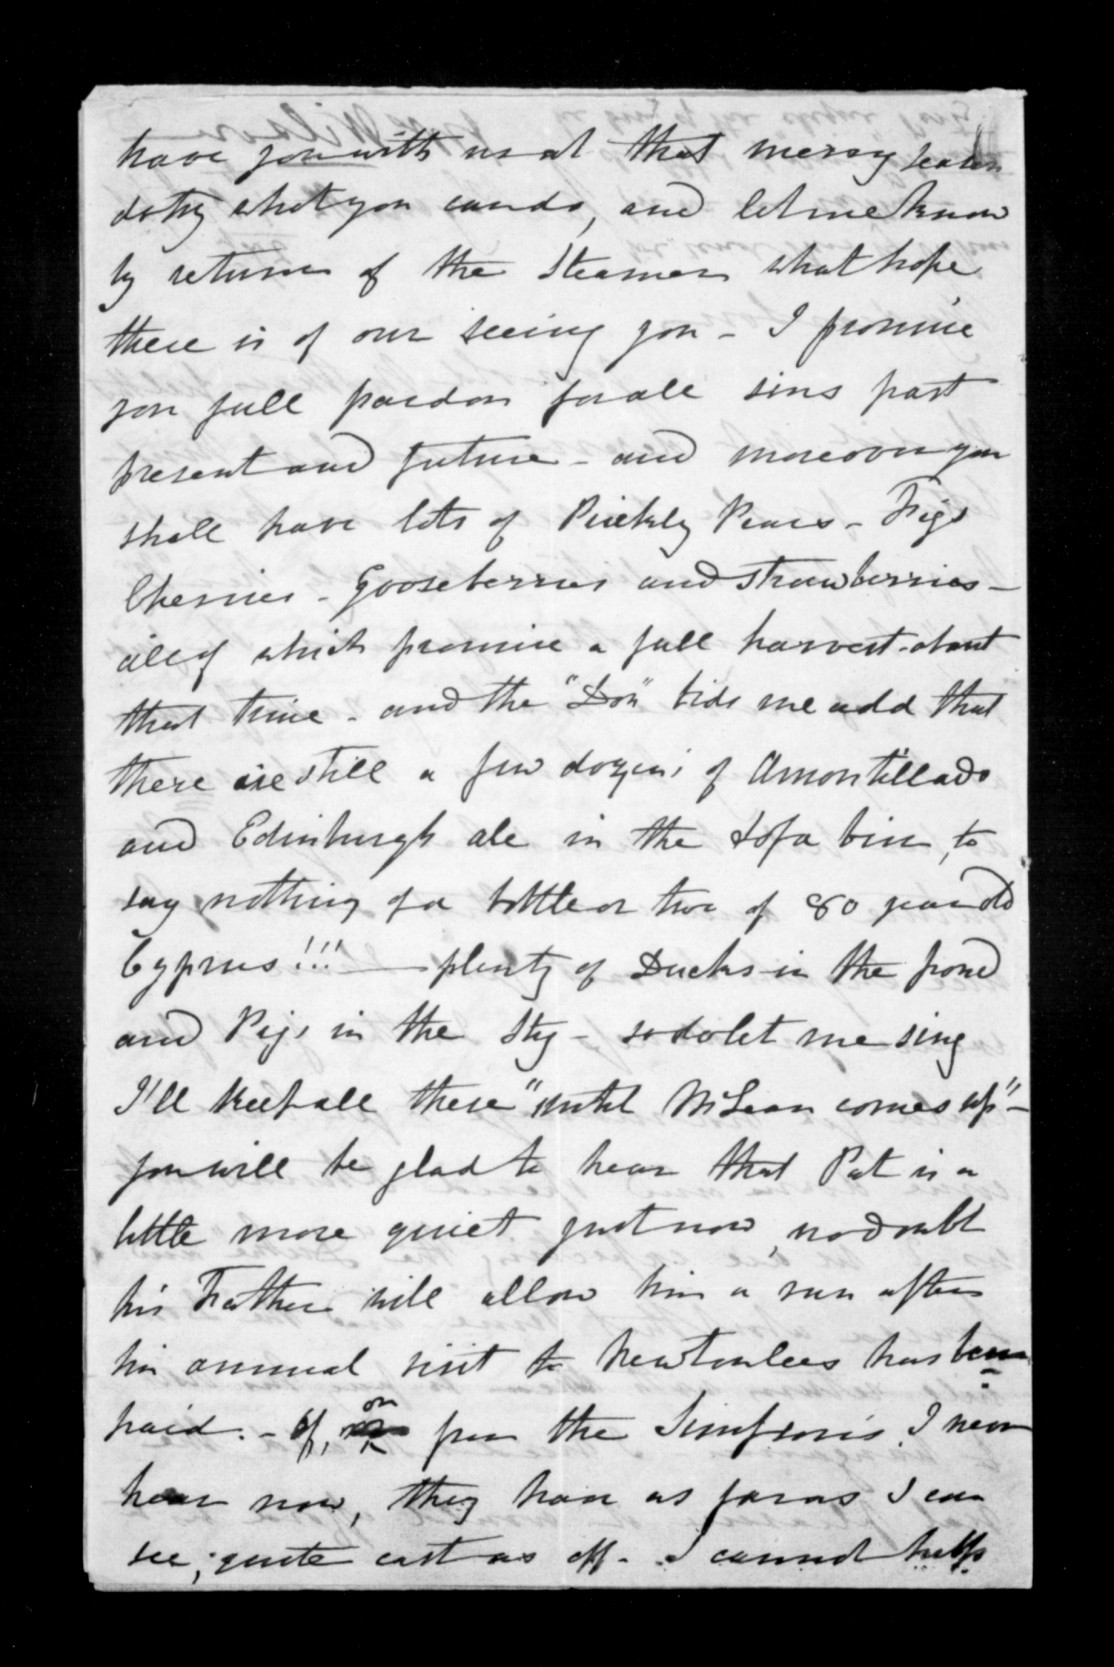 have you with us at that merry season
do try what you can do, and let me know
by return of the Steamer what hope
there is of our seeing you - I promise
you full pardon for all sins past
present and future - and moreover you
shall have lots of Prickly Pears - Figs
Cherries - Gooseberries and strawberries -
all of which promise a full harvest about
that time - and the "Don" bids me add that
there are still a few dozens of Amontillado
and Edinburgh ale in the Sofa bin, to
say nothing of a bottle or two of 80 year old
Cyprus!!! — plenty of Ducks in the pond
and Pigs in the Sty - so do let me sing
I'll keep all these "until McLean comes up" -
you will be glad to hear that Pat is a
little more quiet just now, no doubt
his Father will allow him a run after
his annual visit to Newtonlees has been
paid. - Of, on from the Simpson's I never
hear now, they have as far as I can
see, quite cast us off - I cannot help